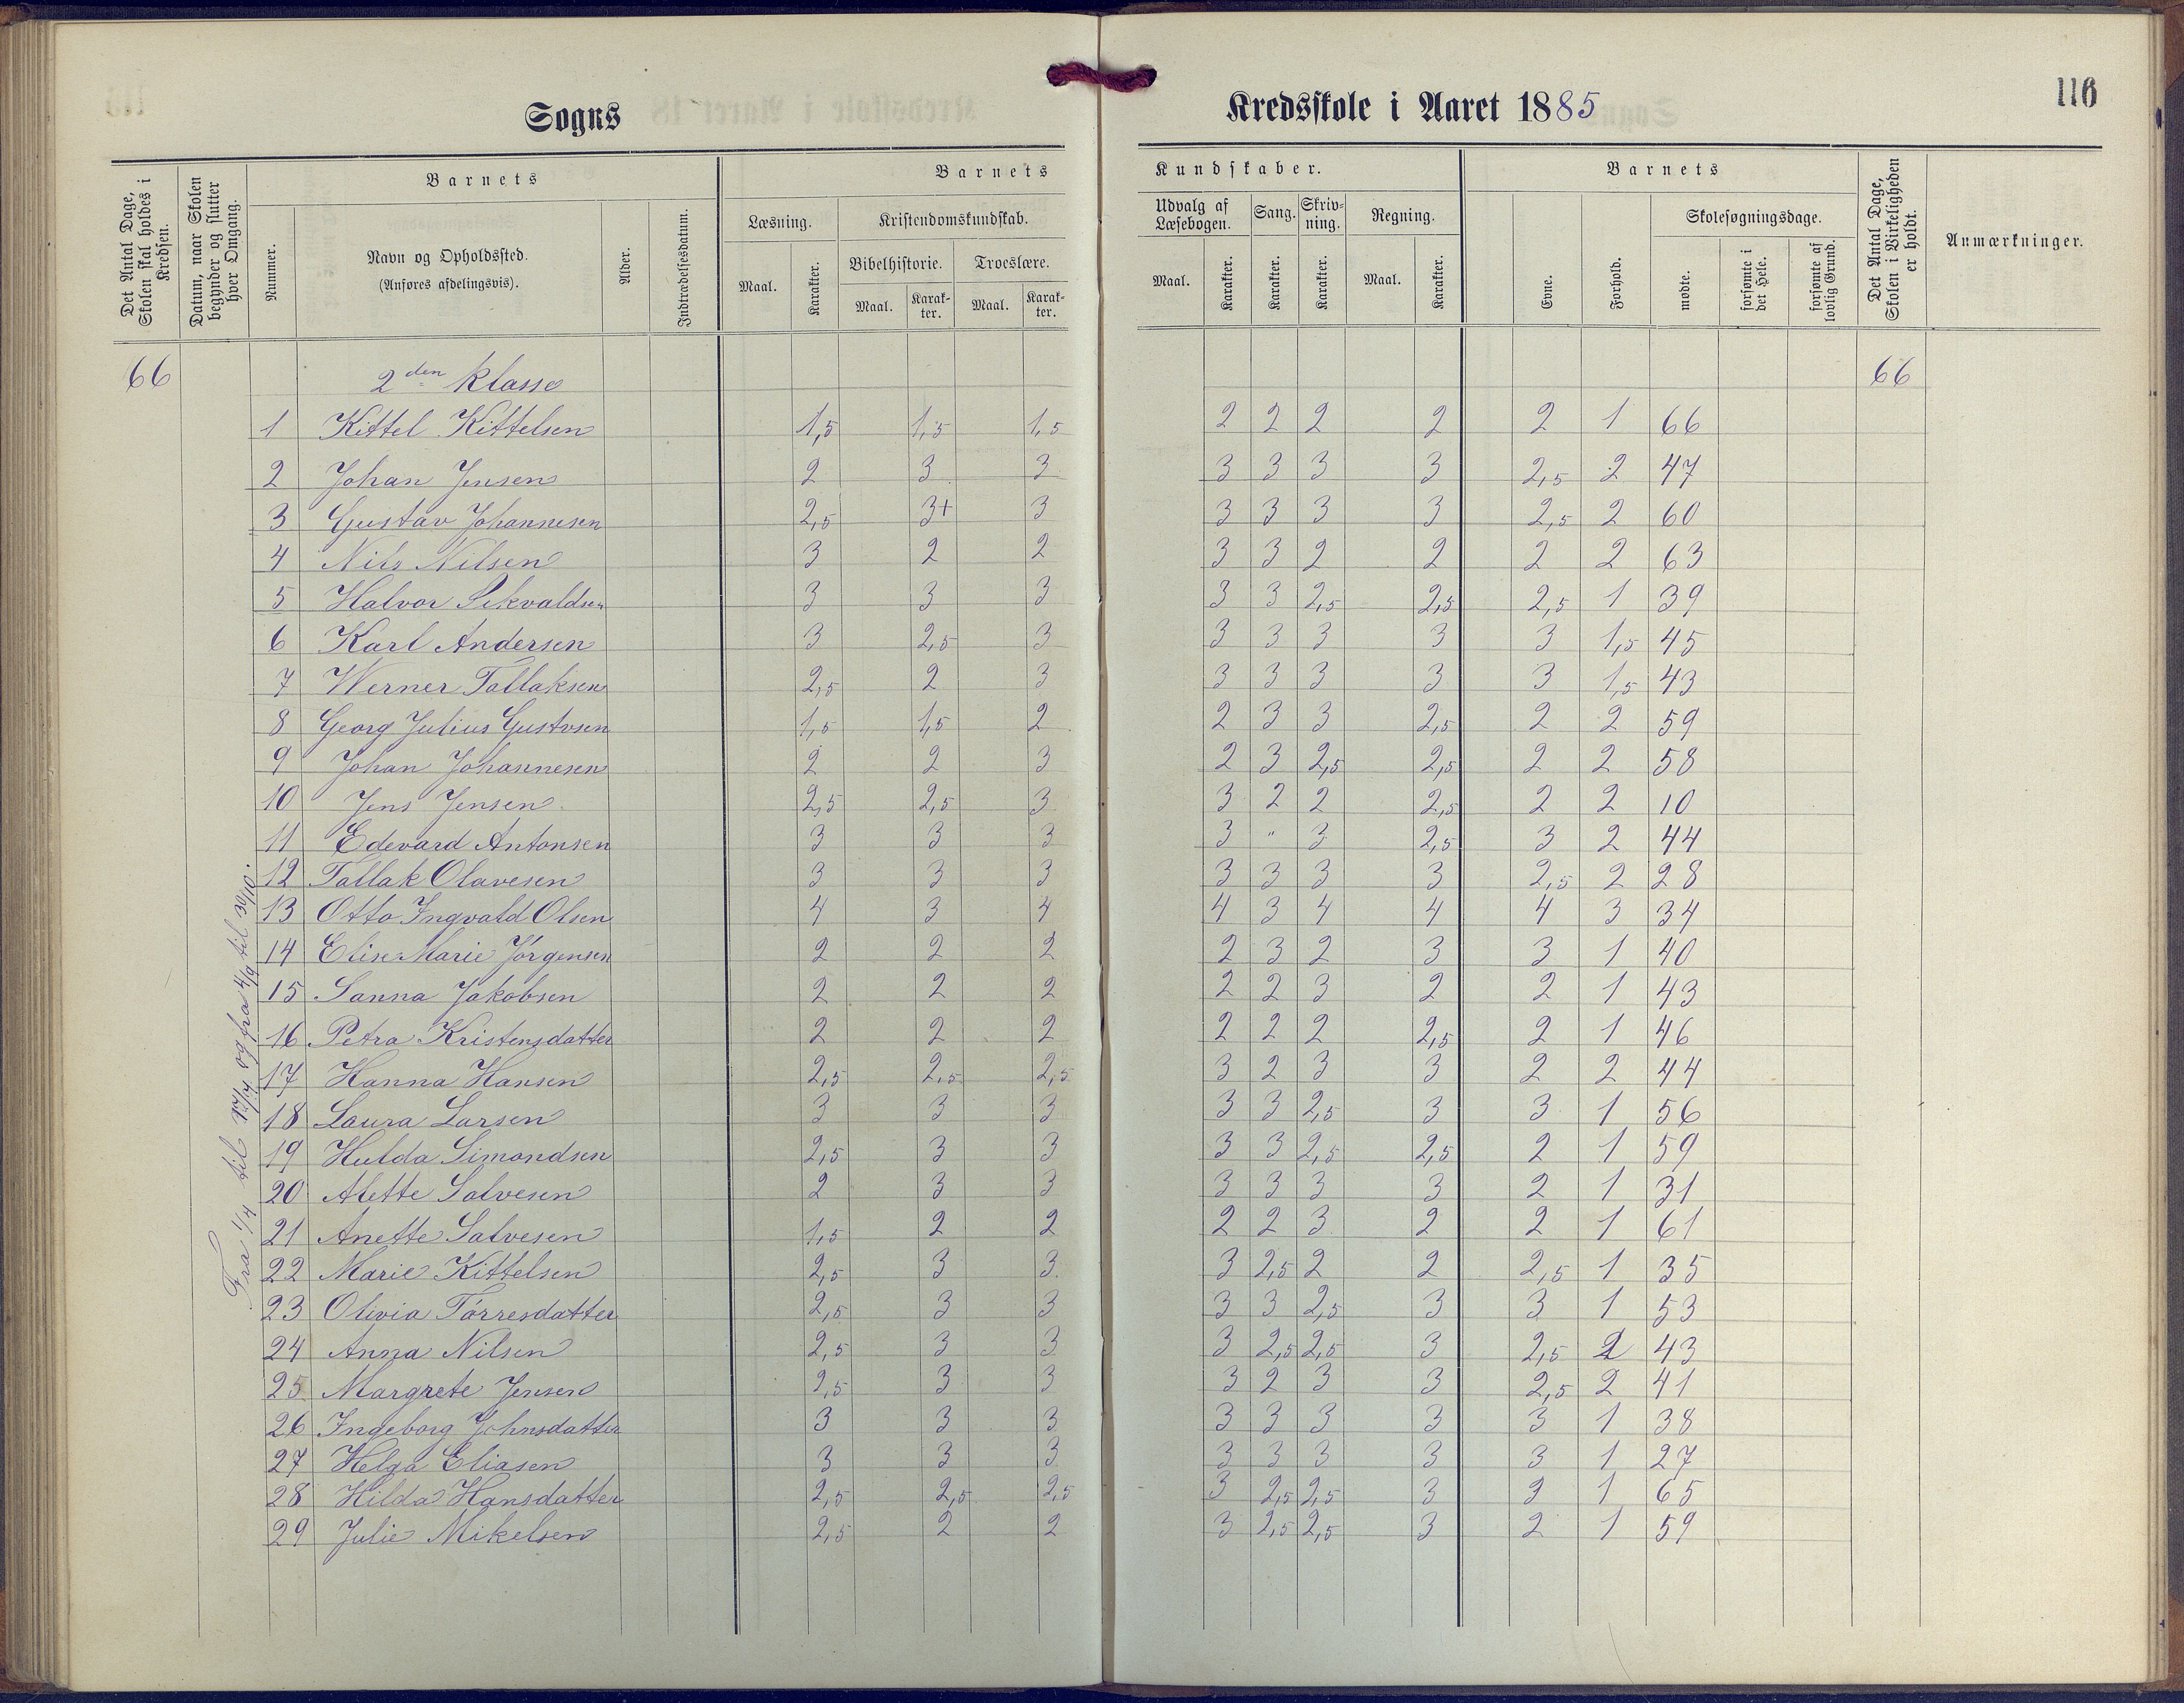 116
Sogns Kredsskole i Aaret 1885
Det Antal Dage, Skolen skal holdes i Kredsen.
Datum, naar Skolen begynder og slutter hver Omgang.
Barnets
Nummer.
Navn og Opholdssted.
(Anføres afdelingsvis).
Alder.
Indtrædelsesdatum.
Barnets Kundskaber.
Læsning.
Maal.
Karakter.
Kristendomskundskab.
Bibelhistorie.
Maal.
Karakter.
Troeslære.
Maal.
Karakter.
Udvalg af Læsebogen.
Maal.
Karakter.
Sang.
Karakter.
Skrivning.
Karakter.
Regning.
Maal.
Karakter.
Barnets
Evne.
Forhold.
Skolesøgningsdage.
mødte.
forsømte i det Hele.
forsømte af lovlig Grund.
Det Antal Dage, Skolen i Virkeligheden er holdt.
Anmærkninger.
66 2den Klasse 66
Fra 1/4 til 17/4 og fra 4/9 til 30/10.
1 Kittel Kittelsen 1,5 1,5 1,5 2 2 2 2 2 1 66
2 Johan Jensen 2 3 3 3 3 3 3 2,5 2 47
3 Gustav Johannesen 2,5 3+ 3 3 3 3 3 2,5 2 60
4 Nils Nilsen 3 2 2 3 3 2 2 2 2 63
5 Halvor Sikvaldsen 3 3 3 3 3 2,5 2,5 2,5 1 39
6 Karl Andersen 3 2,5 3 3 3 3 3 3 1,5 45
7 Werner Tallaksen 2,5 2 3 3 3 3 3 3 1,5 43
8 Georg Julius Gustvsen 1,5 1,5 2 2 3 3 2,5 2 2 59
9 Johan Johannesen 2 2 3 2 3 2,5 2,5 2 2 58
10 Jens Jensen 2,5 2,5 3 3 2 2 2,5 2 2 10
11 Edevard Antonsen 3 3 3 3 " 3 2,5 3 2 44
12 Tallak Olavesen 3 3 3 3 3 3 3 2,5 2 28
13 Otto Ingvald Olsen 4 3 4 4 3 4 4 4 3 34
14 Elise Marie Jørgensen 2 2 2 2 3 2 3 3 1 40
15 Sanna Jakobsen 2 2 2 2 2 3 2 2 1 43
16 Petra Kristensdatter 2 2 2 2 2 2 2,5 2 1 46
17 Hanna Hansen 2,5 2,5 2,5 3 2 3 3 2 2 44
18 Laura Larsen 3 3 3 3 3 2,5 3 3 1 56
19 Hulda Simondsen 2,5 3 3 3 3 2,5 2,5 2 1 59
20 Alette Salvesen 2 3 3 3 3 3 3 2 1 31
21 Anette Salvesen 1,5 2 2 2 2 3 2 2 1 61
22 Marie Kittelsen 2,5 3 3 3 2,5 2 2 2,5 1 35
23 Olivia Tørresdatter 2,5 3 3 3 3 2,5 3 3 1 53
24 Anna Nilsen 2,5 3 3 3 2,5 2,5 3 2,5 2 43
25 Margrete Jensen 2,5 3 3 3 2 3 3 2,5 2 41
26 Ingeborg Johnsdatter 3 3 3 3 3 3 3 3 1 38
27 Helga Eliasen 3 3 3 3 3 3 3 3 1 27
28 Hilda Hansdatter 2,5 2,5 2,5 3 2,5 2,5 3 3 1 65
29 Julie Mikelsen 2,5 2 2 3 2,5 2,5 3 2 1 59